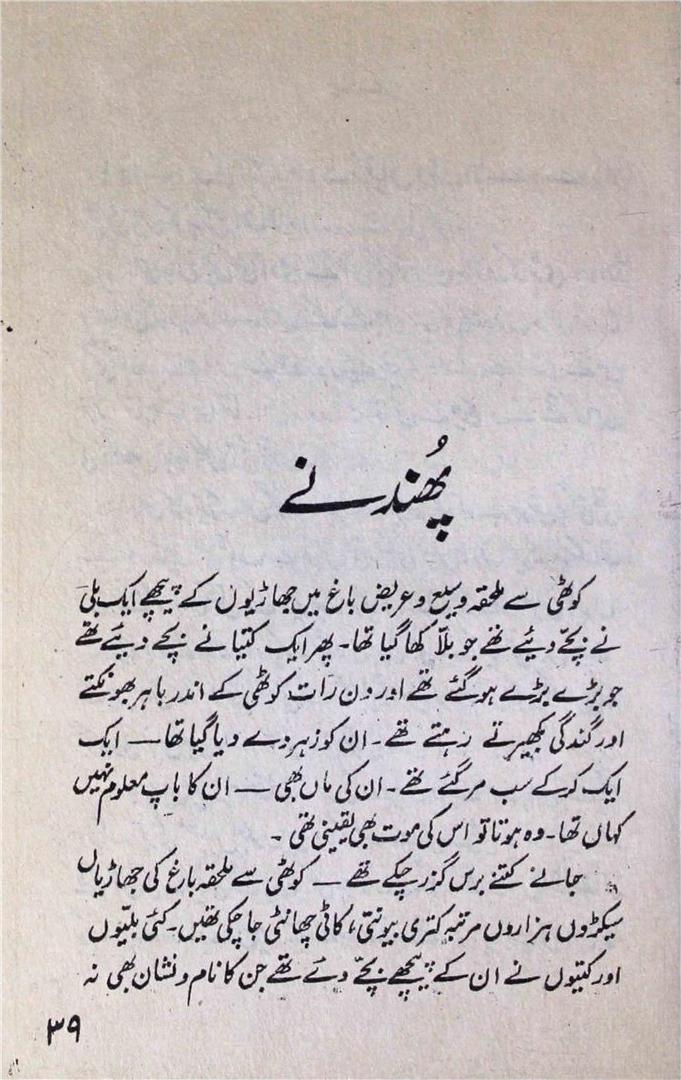 پھُندنے
کوٹھی سے ملحقہ وسیع و عریض باغ میں جھاڑیوں کے پیچھے ایک بلی
نے بچّے دیئے تھے جو بلّا کھا گیا تھا۔ پھر ایک کتیا نے بچے دیئے تھے
جو بڑے بڑے ہو گئے تھے اور دن رات کوٹھی کے اندر باہر بھونکتے
اور گندگی بکھیرتے رہتے تھے۔ ان کو زہر دے دیا گیا تھا — ایک
ایک کرکے سب مر گئے تھے۔ ان کی ماں بھی — ان کا باپ معلوم نہیں
کہاں تھا۔ وہ ہوتا تو اس کی موت بھی یقینی تھی۔
جانے کتنے برس گزر چکے تھے — کوٹھی سے ملحقہ باغ کی جھاڑیاں
سیکڑوں ہزاروں مرتبہ کتری بیونتی، کاٹی چھانٹی جا چکی تھیں۔ کئی بلّیوں
اور کتیوں نے ان کے پیچھے بچّے دئے تھے جن کا نام و نشان بھی نہ
۳۹